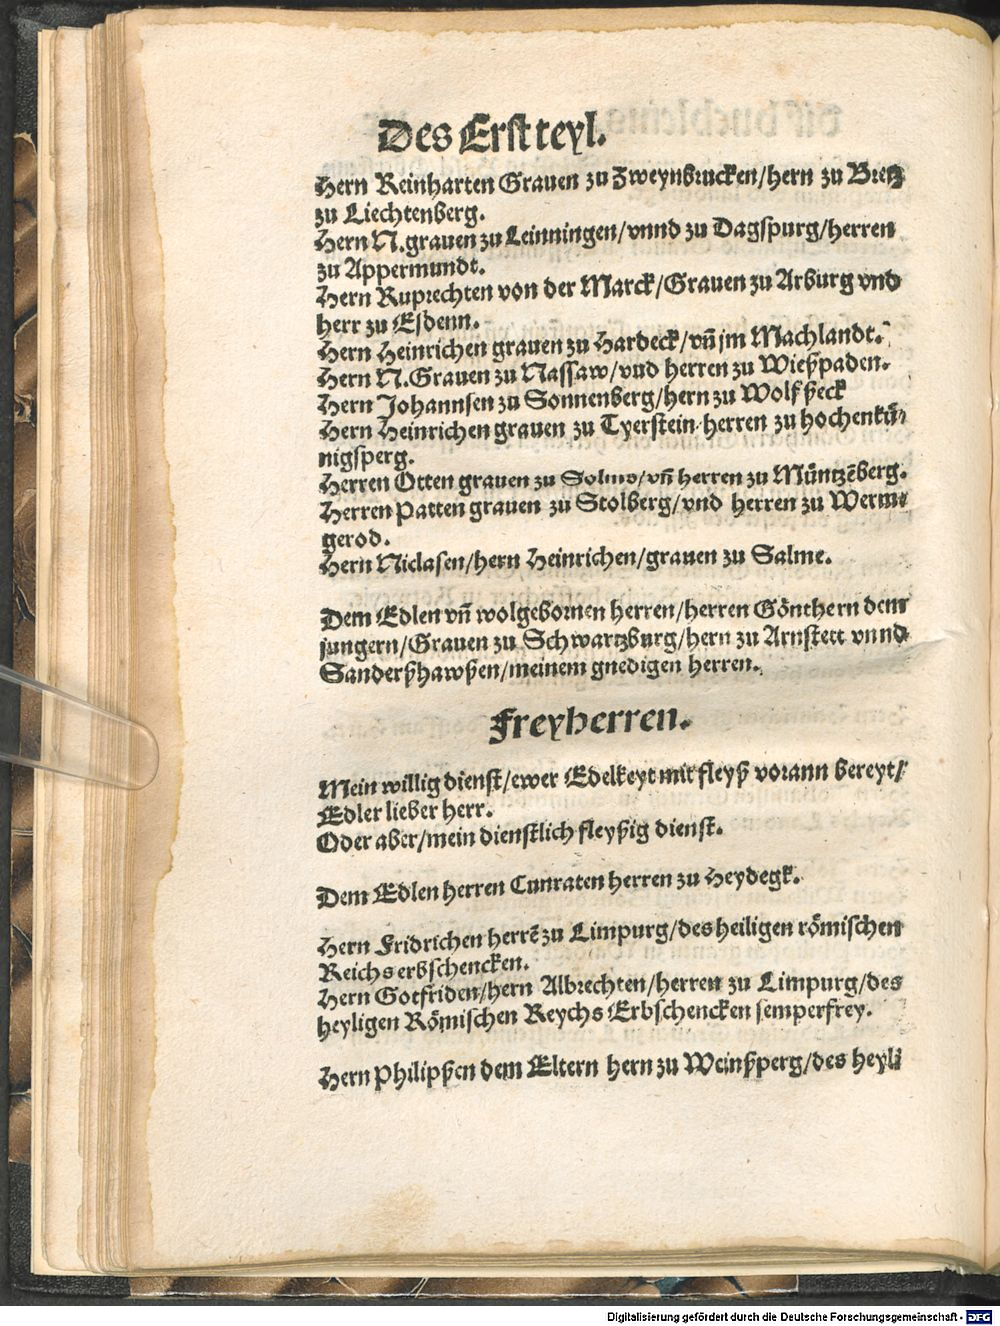 Des Erst teyl.
Hern Reinharten Grauen zu Zweynbrucken/hern zu Bretz
zu Liechtenberg.
Hern N.grauen zu Leinningen/vnnd zu Dagspurg/herren
zu Appermundt.
Hern Ruprechten von der Marck/Grauen zu Arburg vnd
herr zu Esdenn.
Hern Heinrichen grauen zu Hardeck/vn̄ jm Machlandt.
Hern N.Grauen zu Nassaw/vnd herren zu Wießpaden.
Hern Johannsen zu Sonnenberg/hern zu Wolfßeck
Hern Heinrichen grauen zu Tyerstein herren zu hochenkü-
nigsperg.
Herren Otten grauen zu Solms/vn̄ herren zu Müntzēberg.
Herren Patten grauen zu Stolberg/vnd herren zu Werm-
gerod.
Hern Niclasen/hern Heinrichen/grauen zu Salme.
Dem Edlen vn̄ wolgebornen herren/herren Gönthern dem
jungern/Grauen zu Schwartzburg/hern zu Arnstett vnnd
Sanderßhawßen/meinem gnedigen herren.
Freyherren.
Mein willig dienst/ewer Edelkeyt mit fleyß vorann bereyt/
Edler lieber herr.
Oder aber/mein dienstlich fleyßig dienst.
Dem Edlen herren Cunraten herren zu Heydegk.
Hern Fridrichen herrē zu Limpurg/des heiligen römischen
Reichs erbschencken.
Hern Gotfriden/hern Albrechten/herren zu Limpurg/des
heyligen Römischen Reychs Erbschencken semperfrey.
Hern Philipßen dem Eltern hern zu Weinßperg/des heyli
Digitalisierung gefördert durch die Deutsche Forschungsgemeinschaft - DFG